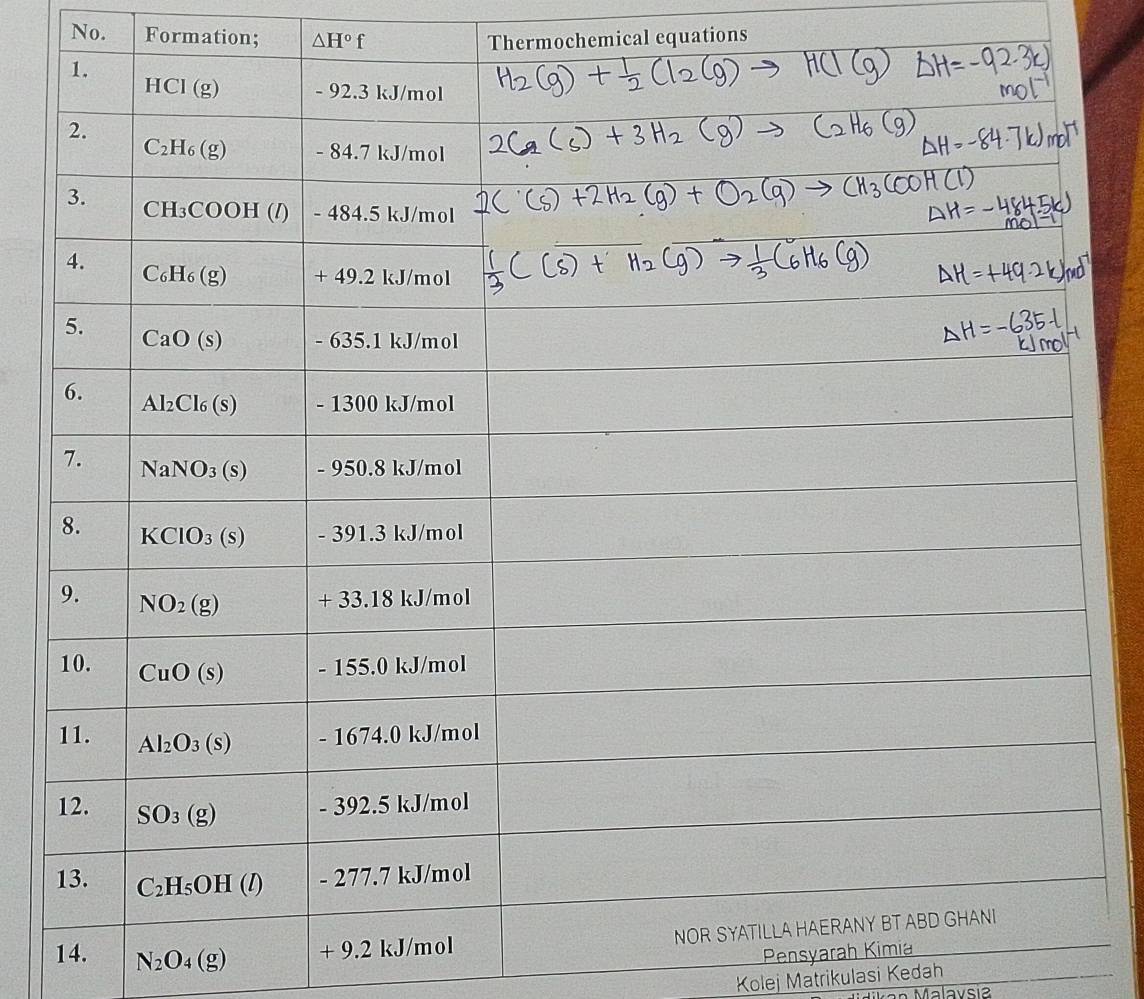 No. Formation; ΔH° f Thermochemical equations
1. HCl (g) - 92.3 kJ/mol H₂ (g) + ½ Cl₂ (g) → HCl (g) ΔH = -92.3 kJ
mol⁻¹
2. C₂H₆ (g) - 84.7 kJ/mol 2C (s) + 3H₂ (g) → C₂H₆ (g)
ΔH = -84.7 kJ mol⁻¹
3. CH₃COOH (l) - 484.5 kJ/mol 2C (s) + 2H₂ (g) + O₂ (g) → CH₃COOH (l)
ΔH = -484.5 kJ
mol⁻¹
4. C₆H₆ (g) + 49.2 kJ/mol ⅓ C (s) + H₂ (g) → ⅓ C₆H₆ (g)
ΔH = +49.2 kJ mol⁻¹
5. CaO (s) - 635.1 kJ/mol ΔH = -635.1
kJ mol⁻¹
6. Al₂Cl₆ (s) - 1300 kJ/mol
7. NaNO₃ (s) - 950.8 kJ/mol
8. KClO₃ (s) - 391.3 kJ/mol
9. NO₂ (g) + 33.18 kJ/mol
10. CuO (s) - 155.0 kJ/mol
11. Al₂O₃ (s) - 1674.0 kJ/mol
12. SO₃ (g) - 392.5 kJ/mol
13. C₂H₅OH (l) - 277.7 kJ/mol
14. N₂O₄ (g) + 9.2 kJ/mol
NOR SYATILLA HAERANY BT ABD GHANI
Pensyarah Kimia
Kolej Matrikulasi Kedah
Malaysia